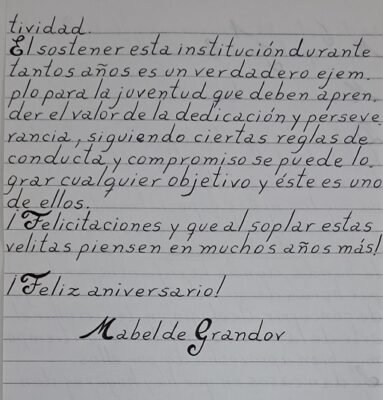 tividad.
El sostener esta institución durante
tantos años es un verdadero ejem.
plo para la juventud que deben apren.
der el valor de la dedicación y perseve
rancia, siguiendo ciertas reglas de
conducta y compromiso se puede lo.
grar cualquier objetivo y éste es uno
de ellos.
¡Felicitaciones y que al soplar estas
velitas piensen en muchos años más!
¡Feliz aniversario!
Mabel de Grandov